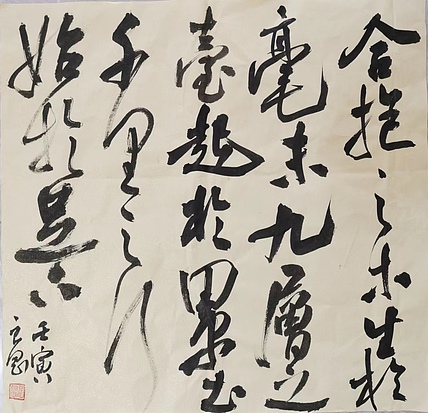 合抱之木生於
毫末九層之
臺起於累土
千里之行
始於足下
壬寅